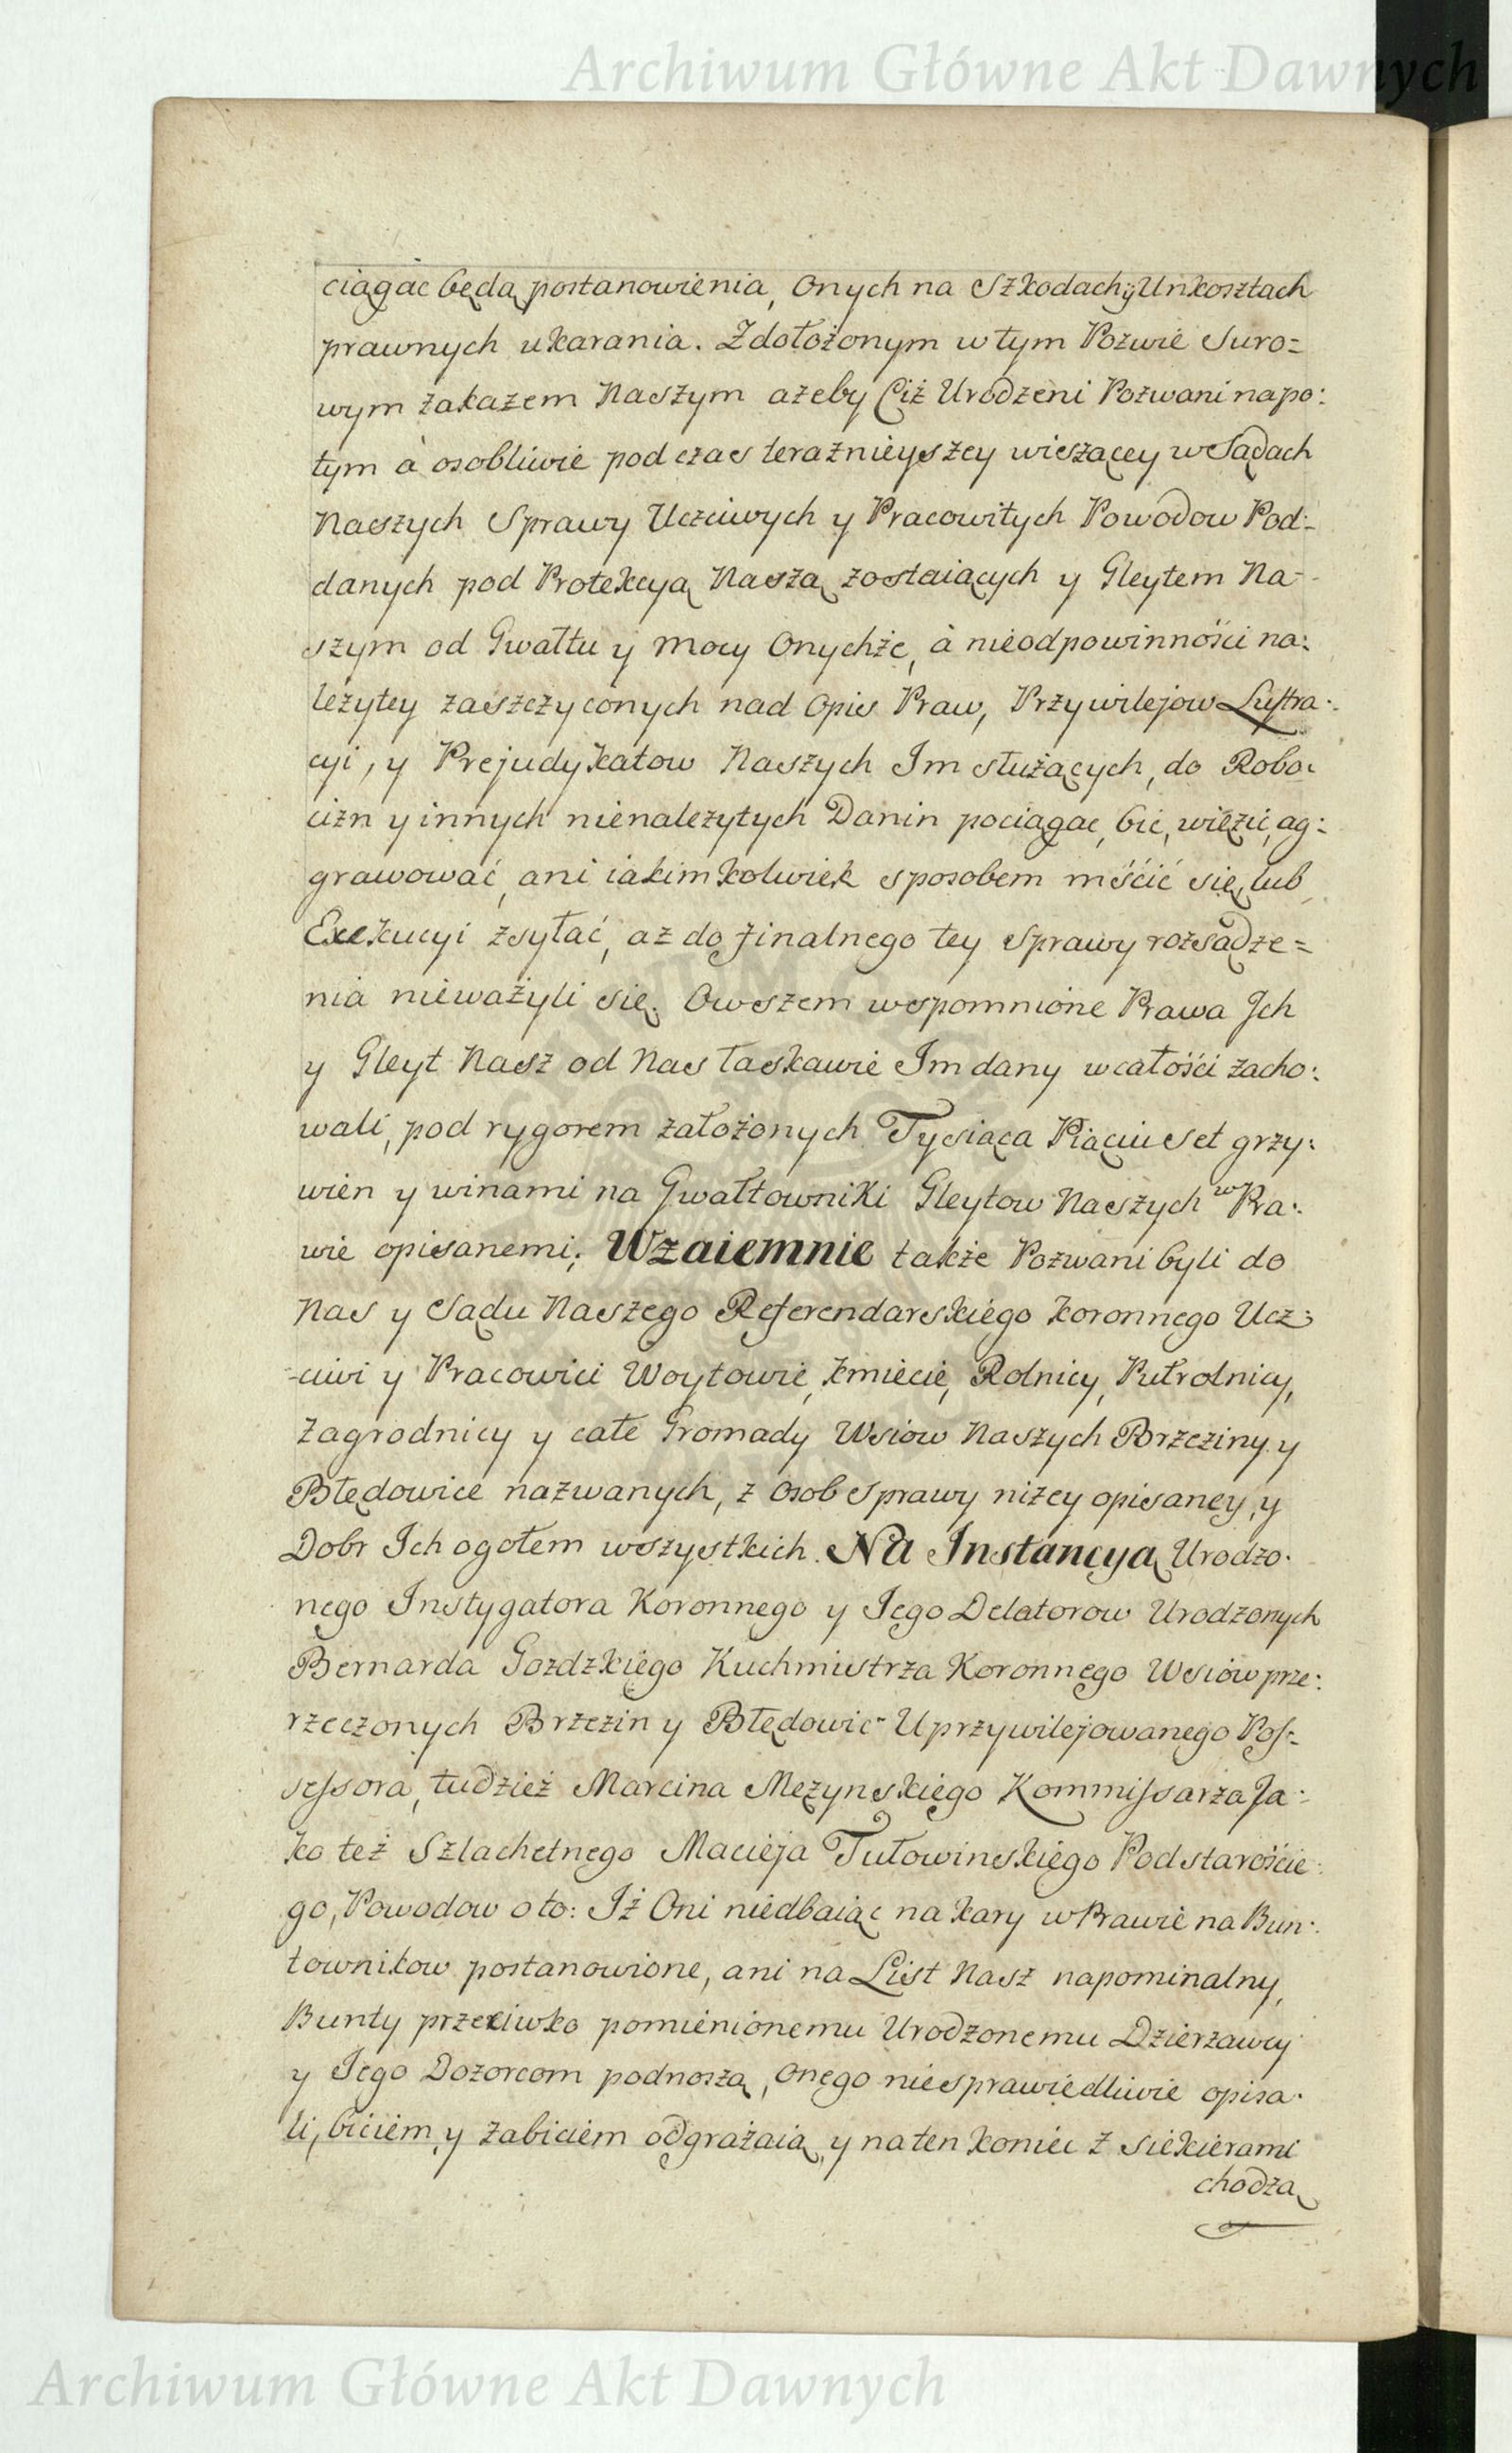 Archiwum Główne Akt Dawnych
ciągać będą postanowienia, Onych na Szkodach y Unkosztach
prawnych ukarania. Zdołożonym w tym Pozwie Suro=
wym zakazem Naszym ażeby Ciż Urodzeni Pozwani napo:
tym à osobliwie pod czas teraznieyszey wiszącey w Sądach
Naszych Sprawy Uczciwych y Pracowitych Powodow Pod:
danych pod Protekcyą Naszą zostaiących y Gleytem Na-
szym od Gwałtu y Mocy Onychże, à nieodpowinności na:
leżytey zaszczyconych nad Opis Praw, Przywilejow Lustra:
cyi, y Prejudykatow Naszych Im służących, do Robo:
cizn y innych nienależytych Danin pociągac, bic, więzic, ag:
grawować, ani iakimkolwiek sposobem mśćić się, lub
Exekucyi zsyłać, aż do finalnego tey Sprawy rozsądze=
nia nieważyli się. Owszem wspomnione Prawa Jch
y Gleyt Nasz od Nas łaskawie Im dany w całośći zacho:
wali, pod rygorem założonych Tysiąca Piąciuset grzy:
wien y winami na Gwałtowniki Gleytow Naszych w Pra:
wie opisanemi; Wzaiemnie także Pozwani byli do
Nas y Sądu Naszego Referendarskiego Koronnego Ucz:
-ciwi y Pracowici Woytowie, Kmiecie, Rolnicy, Pułrolnicy,
Zagrodnicy y całe Gromady Wsiow Naszych Brzeziny y
Błędowice nazwanych, z Osob Sprawy niżey opisaney, y
Dobr Ich ogołem wszystkich. Na Instancyą Urodzo:
nego Instygatora Koronnego y Jego Delatorow Urodzonych
Bernarda Gozdzkiego Kuchmistrza Koronnego Wsiow prze:
rzeczonych Brzezin y Błędowic Uprzywilejowanego Pos:
sessora, tudzież Marcina Mężynskiego Kommissarza Ja:
ko też Szlachetnego Macieja Tułowinskiego Podstarośćie:
go, Powodow o to: Iż Oni niedbaiąc na kary w Prawie na Bun:
townikow postanowione, ani na List Nasz napominalny,
Bunty przeciwko pomienionemu Urodzonemu Dzierzawcy
y Jego Dozorcom podnoszą, Onego niesprawiedliwie opisa:
li, biciem y zabiciem odgrażaią, y na ten koniec z siekierami
chodzą
Archiwum Główne Akt Dawnych